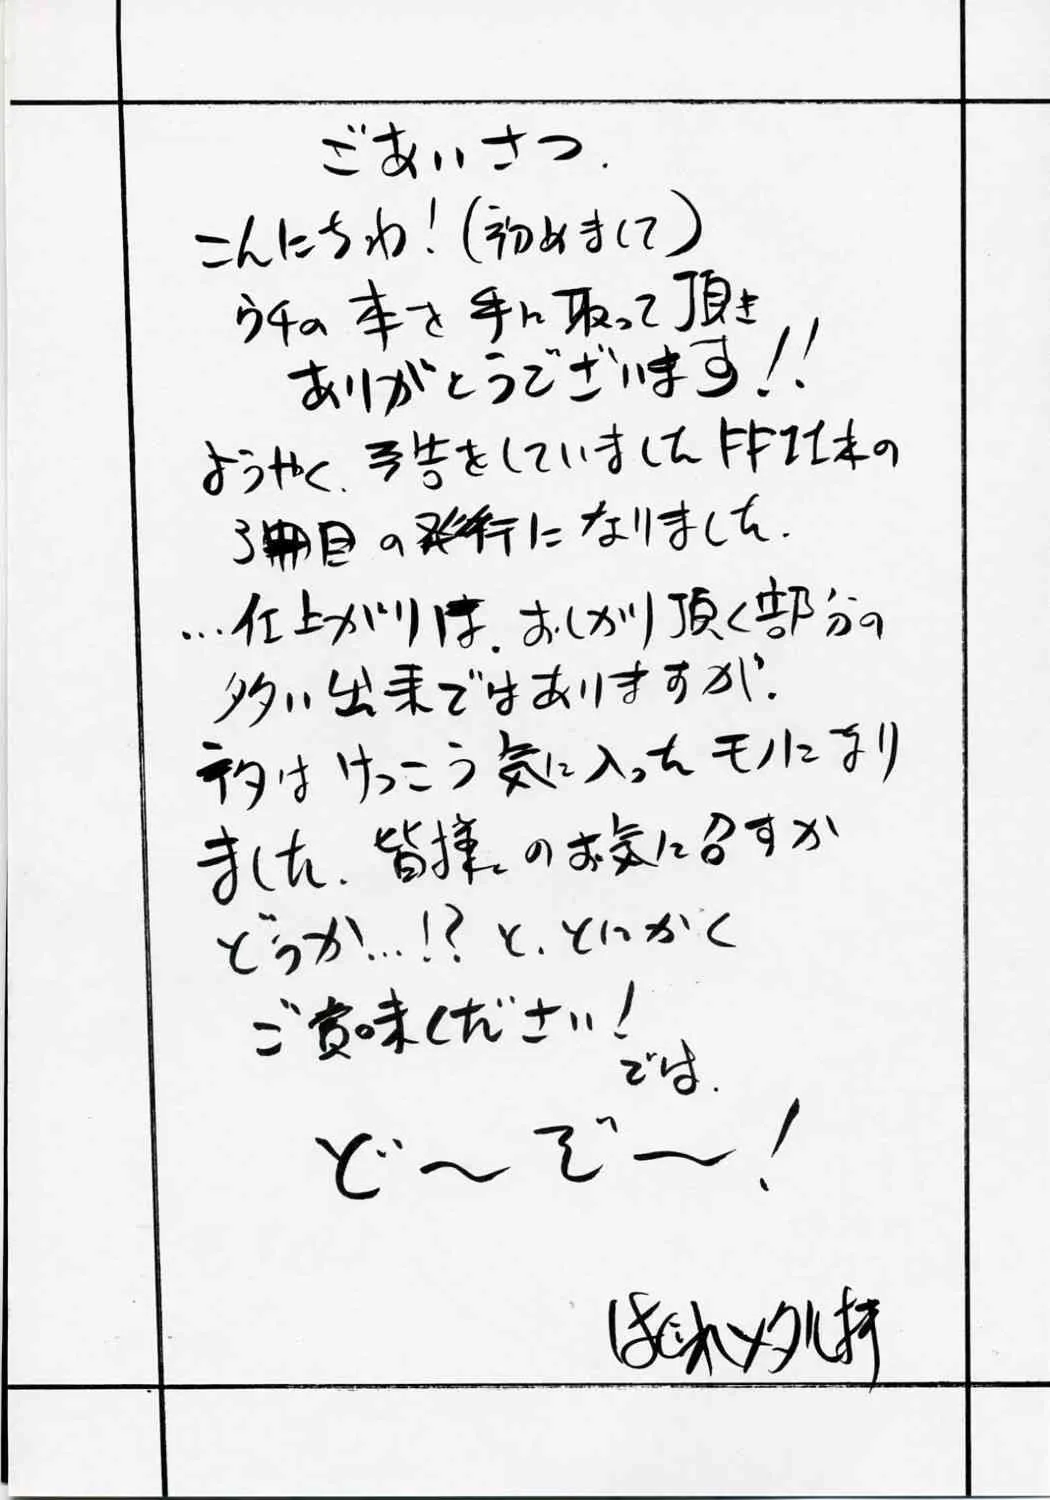 ごあいさつ.
こんにちわ!(初めまして)
ウチの本を手に取って頂き
ありがとうございます!!
ようやく、予告をしていましたFFⅦ本の
3冊目の発行になりました.
…仕上がりは、おしかり頂く部分の
多い出来ではありますが.
ネタはけっこう気に入ったモノになり
ました、皆様のお気に召すか
どうか…!?と、とにかく
ご賞味ください!
では、
ど〜ぞ〜!
はぐれメタル